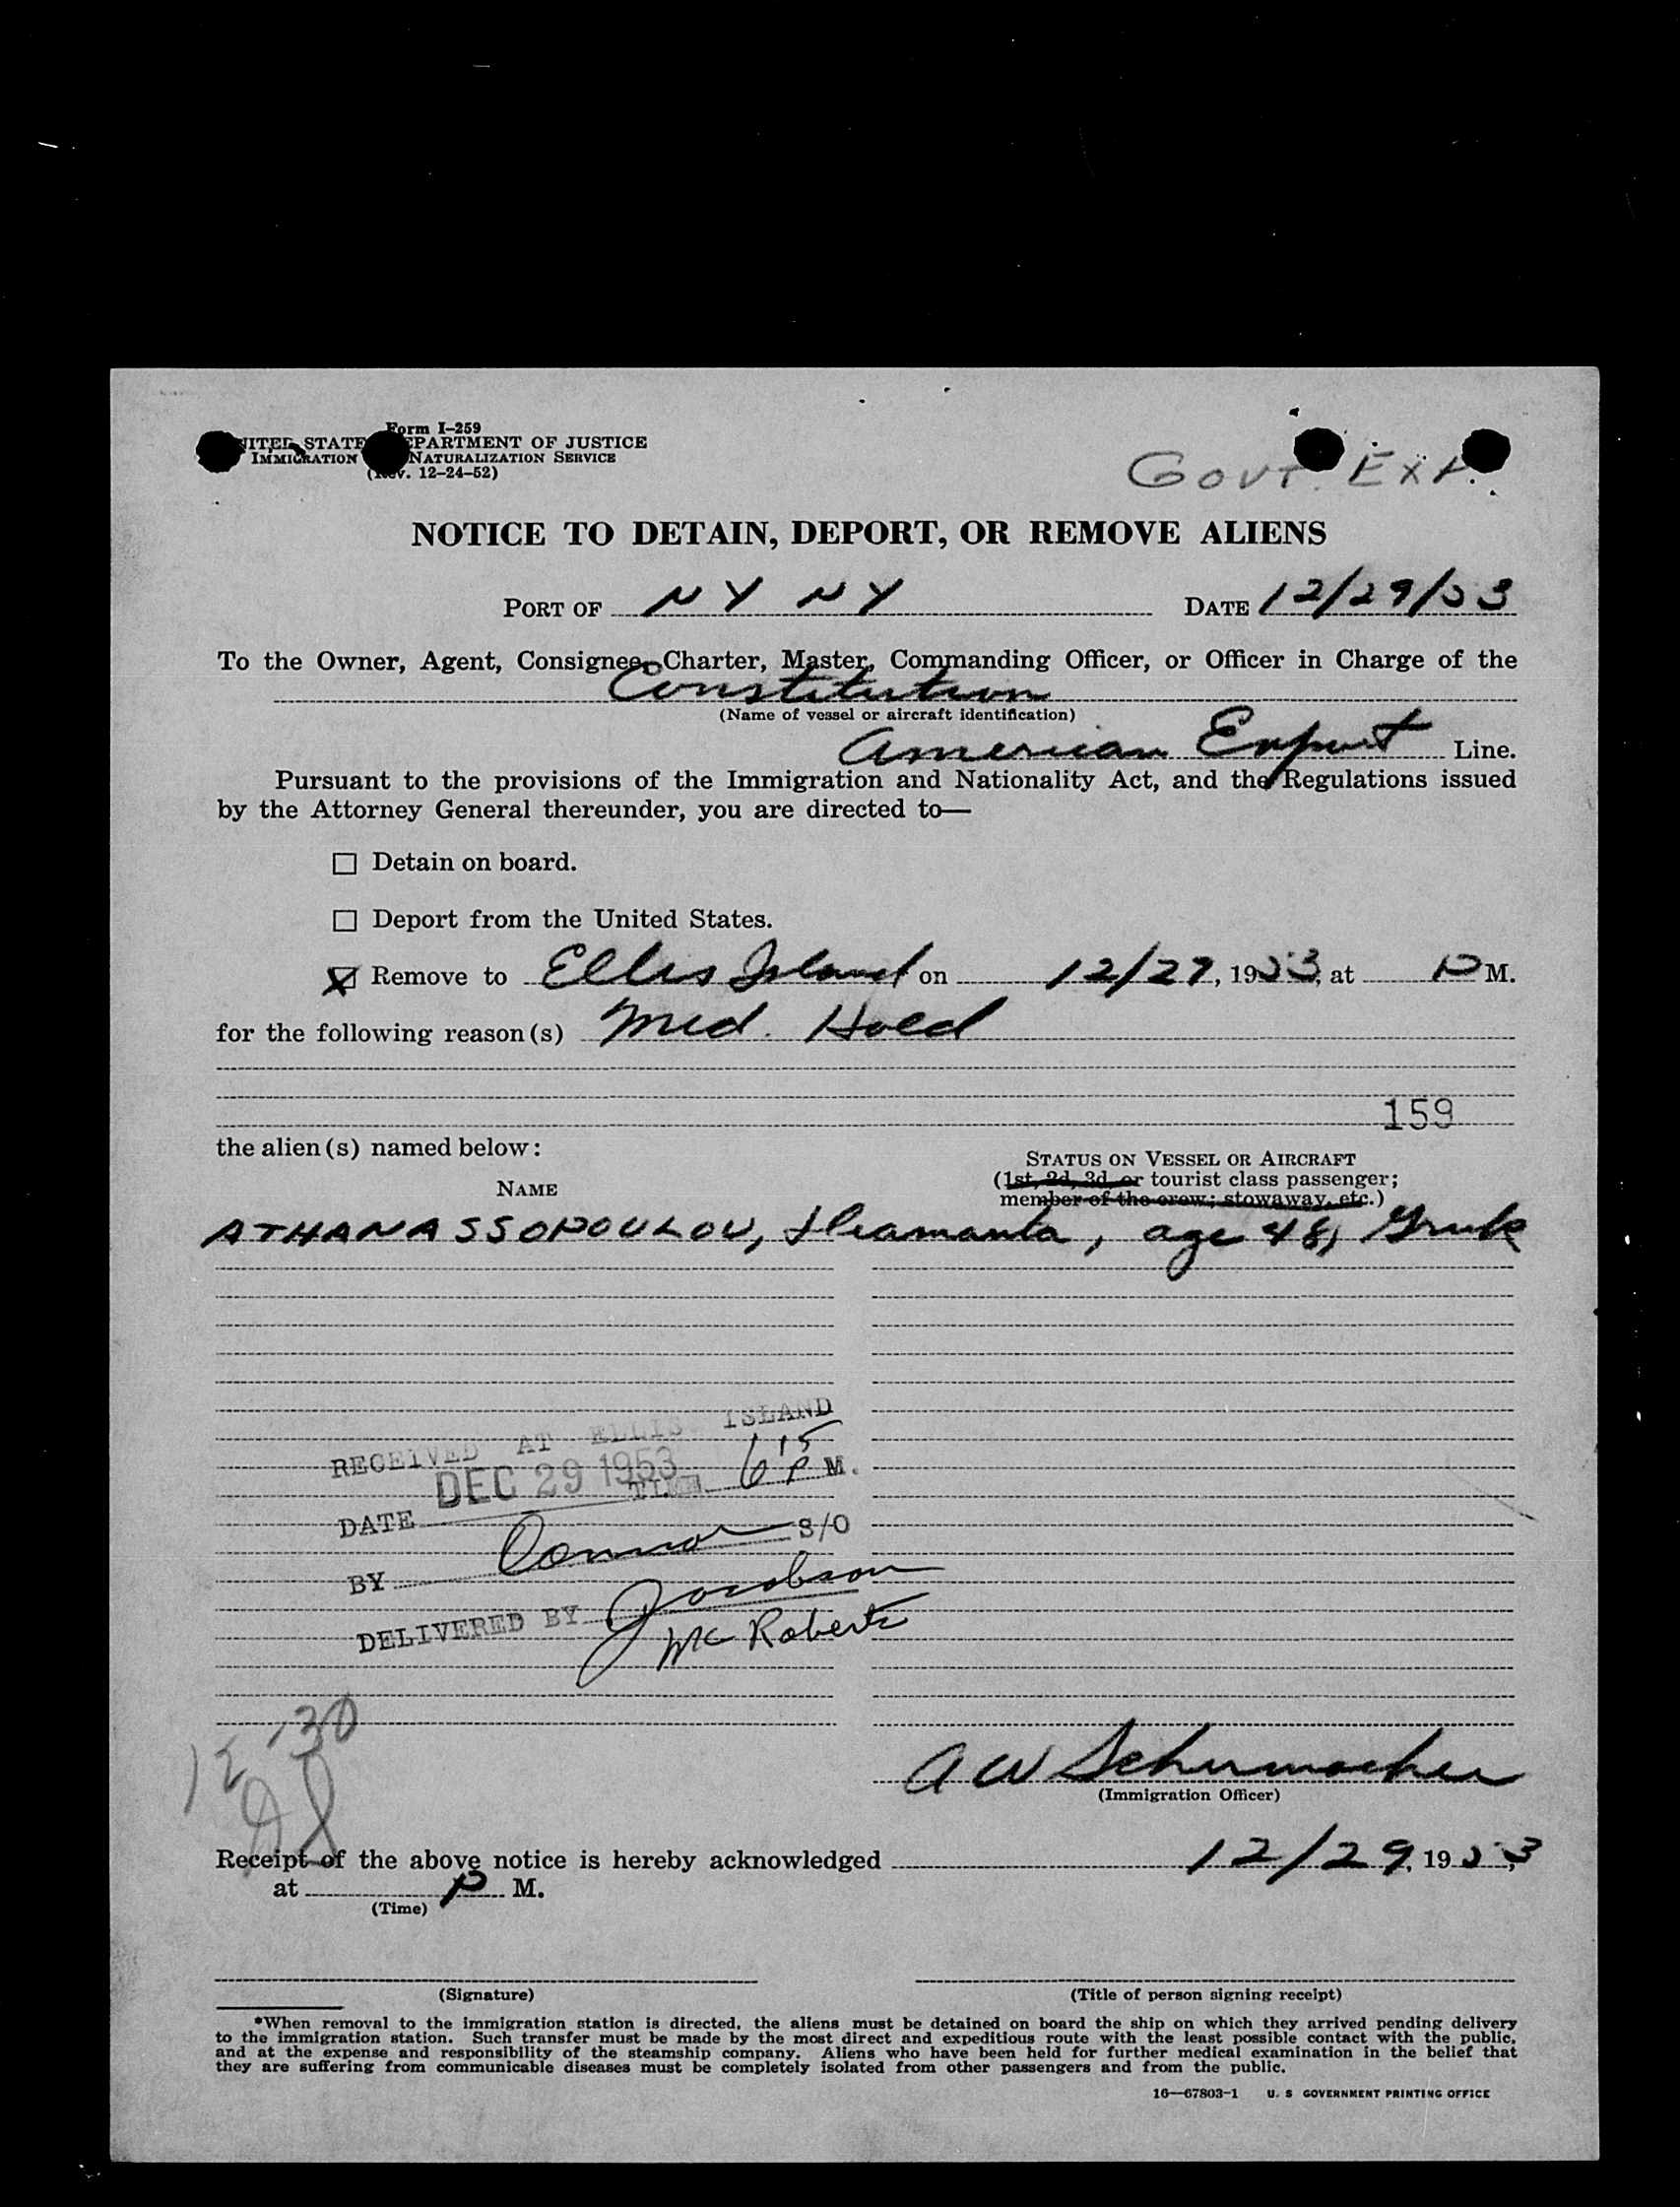 Form I-259
UNITED STATES DEPARTMENT OF JUSTICE
IMMIGRATION NATURALIZATION SERVICE
(Rev. 12-24-52)
GOVT. EXP.
NOTICE TO DETAIN, DEPORT, OR REMOVE ALIENS
PORT OF NY NY DATE 12/29/53
To the Owner, Agent, Consignee, Charter, Master, Commanding Officer, or Officer in Charge of the
Constitution
(Name of vessel or aircraft identification)
American Export Line.
Pursuant to the provisions of the Immigration and Nationality Act, and the Regulations issued
by the Attorney General thereunder, you are directed to—
☐ Detain on board.
☐ Deport from the United States.
☒ Remove to Ellis Island on 12/29, 1953, at P M.
for the following reason(s) Med. Hold
159
the alien(s) named below:
STATUS ON VESSEL OR AIRCRAFT
NAME
(1st, 2d, 3d, or tourist class passenger;
member of the crew; stowaway, etc.)
ATHANASSOPOULOU, age 48, Greek
RECEIVED AT ELLIS ISLAND
DEC 29 1953 TIME 6 15 P M.
DATE
BY Connor S/O
DELIVERED BY Jacobson
McRoberts
12-30
A W Schumacher
(Immigration Officer)
Receipt of the above notice is hereby acknowledged 12/29, 1953,
at P M.
(Time)
(Signature) (Title of person signing receipt)
*When removal to the immigration station is directed, the aliens must be detained on board the ship on which they arrived pending delivery
to the immigration station. Such transfer must be made by the most direct and expeditious route with the least possible contact with the public,
and at the expense and responsibility of the steamship company. Aliens who have been held for further medical examination in the belief that
they are suffering from communicable diseases must be completely isolated from other passengers and from the public.
16—67803-1 U. S GOVERNMENT PRINTING OFFICE